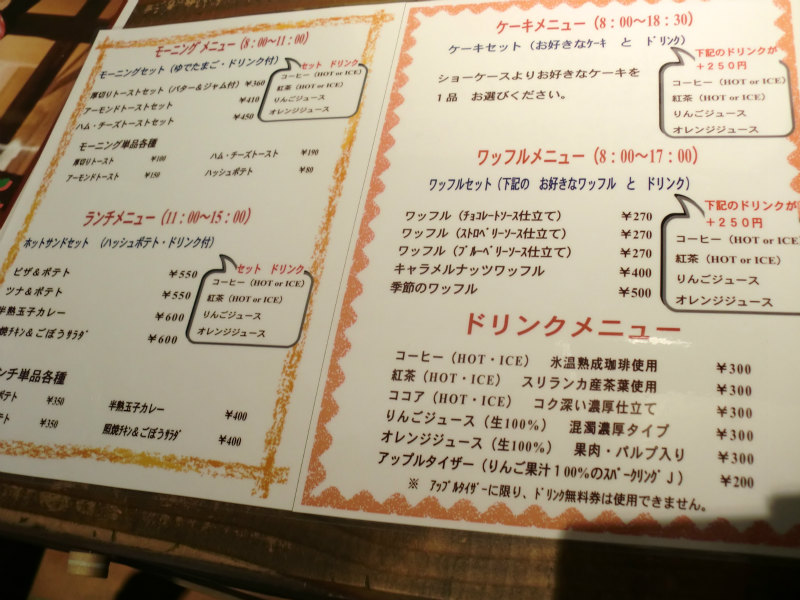 モーニング メニュー（8：00〜11：00）
モーニングセット（ゆでたまご・ドリンク付）
厚切りトーストセット（バター＆ジャム付） ￥360
アーモンドトーストセット ￥410
ハム・チーズトーストセット ￥450
セット ドリンク
コーヒー（HOT or ICE）
紅茶（HOT or ICE）
りんごジュース
オレンジジュース
モーニング単品各種
厚切りトースト ￥100 ハム・チーズトースト ￥190
アーモンドトースト ￥150 ハッシュポテト ￥80
ランチメニュー（11：00〜15：00）
ホットサンドセット （ハッシュポテト・ドリンク付）
ピザ＆ポテト ￥550
ツナ＆ポテト ￥550
半熟玉子カレー ￥600
焼ﾁｷﾝ＆ごぼうｻﾗﾀﾞ ￥600
セット ドリンク
コーヒー（HOT or ICE）
紅茶（HOT or ICE）
りんごジュース
オレンジジュース
ンチ単品各種
ポテト ￥350 半熟玉子カレー ￥400
テト ￥350 照焼ﾁｷﾝ＆ごぼうｻﾗﾀﾞ ￥400
ケーキメニュー（8：00〜18：30）
ケーキセット（お好きなｹｰｷ と ﾄﾞﾘﾝｸ）
ショーケースよりお好きなケーキを
1品 お選びください。
下記のドリンクが
＋250円
コーヒー（HOT or ICE）
紅茶（HOT or ICE）
りんごジュース
オレンジジュース
ワッフルメニュー（8：00〜17：00）
ワッフルセット（下記の お好きなワッフル と ドリンク）
ワッフル（ﾁｮｺﾚｰﾄソース仕立て） ￥270
ワッフル（ｽﾄﾛﾍﾞﾘｰソース仕立て） ￥270
ワッフル（ﾌﾞﾙｰﾍﾞﾘｰソース仕立て） ￥270
キャラメルナッツワッフル ￥400
季節のワッフル ￥500
下記のドリンクが
＋250円
コーヒー（HOT or ICE
紅茶（HOT or ICE）
りんごジュース
オレンジジュース
ドリンクメニュー
コーヒー（HOT・ICE） 氷温熟成珈琲使用 ￥300
紅茶（HOT・ICE） スリランカ産茶葉使用 ￥300
ココア（HOT・ICE） コク深い濃厚仕立て ￥300
りんごジュース（生100％） 混濁濃厚タイプ ￥300
オレンジジュース（生100％） 果肉・パルプ入り ￥300
アップルタイザー（りんご果汁100％のｽﾊﾟｰｸﾘﾝｸﾞJ） ￥200
※ ｱｯﾌﾟﾙﾀｲｻﾞｰに限り、ﾄﾞﾘﾝｸ無料券は使用できません。